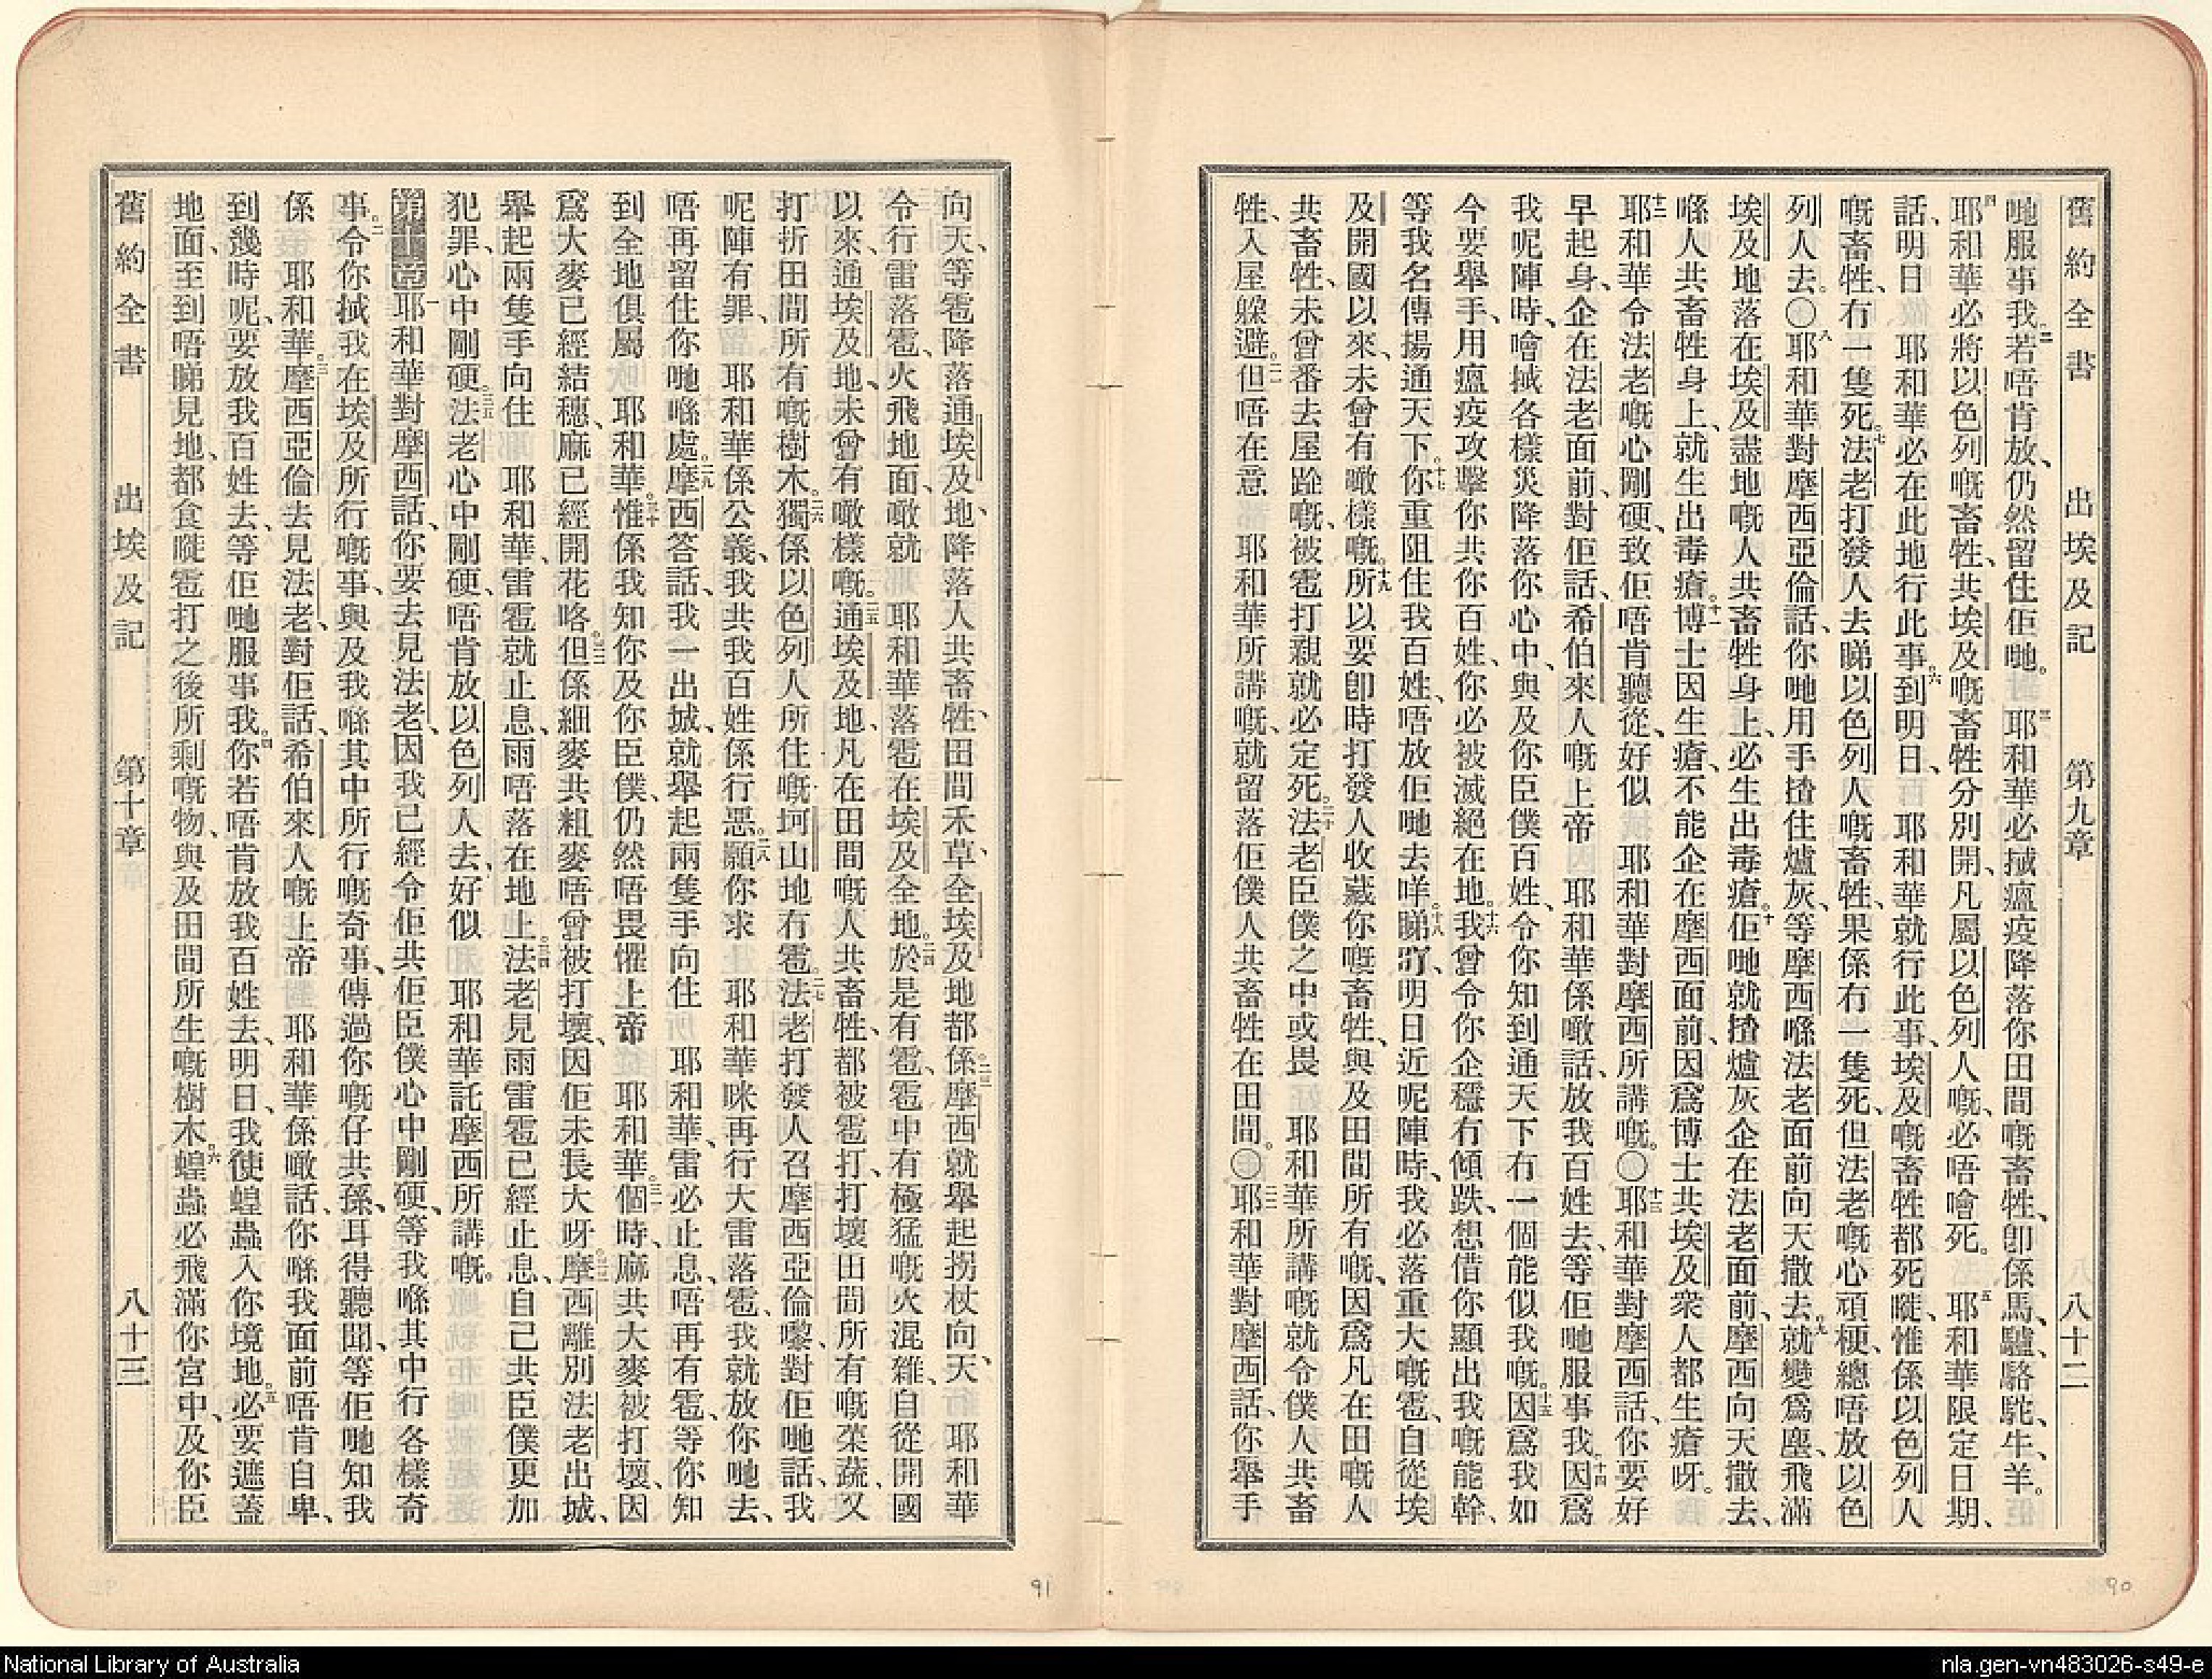 舊約全書　出埃及記　第九章　八十二
哋服事我、二若唔肯放、仍然留住佢哋。三耶和華必搣瘟疫降落你田間嘅畜牲、卽係馬、驢、駱駝、牛、羊。
四耶和華必將以色列嘅畜牲、共埃及嘅畜牲分別開、凡屬以色列人嘅、必唔噲死。五耶和華限定日期、
話、明日　耶和華必在此地行此事。六到明日、耶和華就行此事、埃及嘅畜牲都死嘥、惟係以色列人
嘅畜牲、冇一隻死。七法老打發人去睇以色列人嘅畜牲、果係冇一隻死、但法老嘅心頑梗、總唔放以色
列人去。〇八耶和華對摩西亞倫話、你哋用手揸住爐灰、等摩西喺法老面前向天撒去。九就變爲塵、飛滿
埃及地、落在埃及盡地嘅人共畜牲身上、必生出毒瘡。十佢哋就揸爐灰企在法老面前、摩西向天撒去、
喺人共畜牲身上、就生出毒瘡。十一博士因生瘡、不能企在摩西面前、因爲博士共埃及衆人都生瘡呀。
十二耶和華令法老嘅心剛硬、致佢唔肯聽從、好似　耶和華對摩西所講嘅。〇十三耶和華對摩西話、你要好
早起身、企在法老面前、對佢話、希伯來人嘅上帝　耶和華係噉話、放我百姓去、等佢哋服事我。十四因爲
我呢陣時、噲搣各樣災降落你心中、與及你臣僕百姓、令你知到通天下冇一個能似我嘅。十五因爲我如
今要舉手、用瘟疫攻擊你共你百姓、你必被滅絕在地。十六我曾令你企穩冇傾跌、想借你顯出我嘅能幹、
等我名傳揚通天下。十七你重阻住我百姓、唔放佢哋去咩。十八睇嚀、明日近呢陣時、我必落重大嘅雹、自從埃
及開國以來、未曾有噉樣嘅。十九所以要卽時打發人收藏你嘅畜牲、與及田間所有嘅、因爲凡在田嘅人
共畜牲、未曾番去屋跧嘅、被雹打親就必定死。二十法老臣僕之中或畏　耶和華所講嘅就令僕人共畜
牲、入屋躱避。二一但唔在意　耶和華所講嘅、就留落佢僕人共畜牲在田間。〇二二耶和華對摩西話、你舉手
向天、等雹降落通埃及地、降落人共畜牲、田間禾草、全埃及地都係。二三摩西就舉起拐杖向天、耶和華
令行雷落雹、火飛地面、噉就　耶和華落雹在埃及全地。二四於是有雹、雹中有極猛嘅火混雜、自從開國
以來、通埃及地、未曾有噉樣嘅。二五通埃及地、凡在田間嘅人共畜牲、都被雹打、打壞田間所有嘅菜蔬、又
打折田間所有嘅樹木。二六獨係以色列人所住嘅坷山地冇雹。二七法老打發人召摩西亞倫嚟、對佢哋話、我
呢陣有罪、耶和華係公義、我共我百姓係行惡。二八願你求　耶和華咪再行大雷落雹、我就放你哋去、
唔再留住你哋喺處。二九摩西答話、我一出城、就舉起兩隻手向住　耶和華、雷必止息、唔再有雹、等你知
到全地俱屬　耶和華。三十惟係我知你及你臣僕、仍然唔畏懼上帝　耶和華。三一個時、麻共大麥被打壞、因
爲大麥已經結穗、麻已經開花咯。三二但係細麥共粗麥唔曾被打壞、因佢未長大呀。三三摩西離別法老出城、
舉起兩隻手向住　耶和華、雷雹就止息、雨唔落在地上。三四法老見雨雷雹已經止息、自己共臣僕更加
犯罪、心中剛硬。三五法老心中剛硬、唔肯放以色列人去、好似　耶和華託摩西所講嘅。
第十章　一耶和華對摩西話、你要去見法老、因我已經令佢共佢臣僕心中剛硬、等我喺其中行各樣奇
事。二令你搣我在埃及所行嘅事、與及我喺其中所行嘅奇事、傳過你嘅仔共孫、耳得聽聞、等佢哋知我
係　耶和華。三摩西亞倫去見法老、對佢話、希伯來人嘅上帝　耶和華係噉話、你喺我面前唔肯自卑、
到幾時呢、要放我百姓去、等佢哋服事我。四你若唔肯放我百姓去、明日、我使蝗蟲入你境地。五必要遮蓋
地面、至到唔睇見地、都食嘥雹打之後所剩嘅物、與及田間所生嘅樹木。六蝗蟲必飛滿你宮中、及你臣
舊約全書　出埃及記　第十章　八十三
91
90
National Library of Australia
nla.gen-vn483026-s49-e